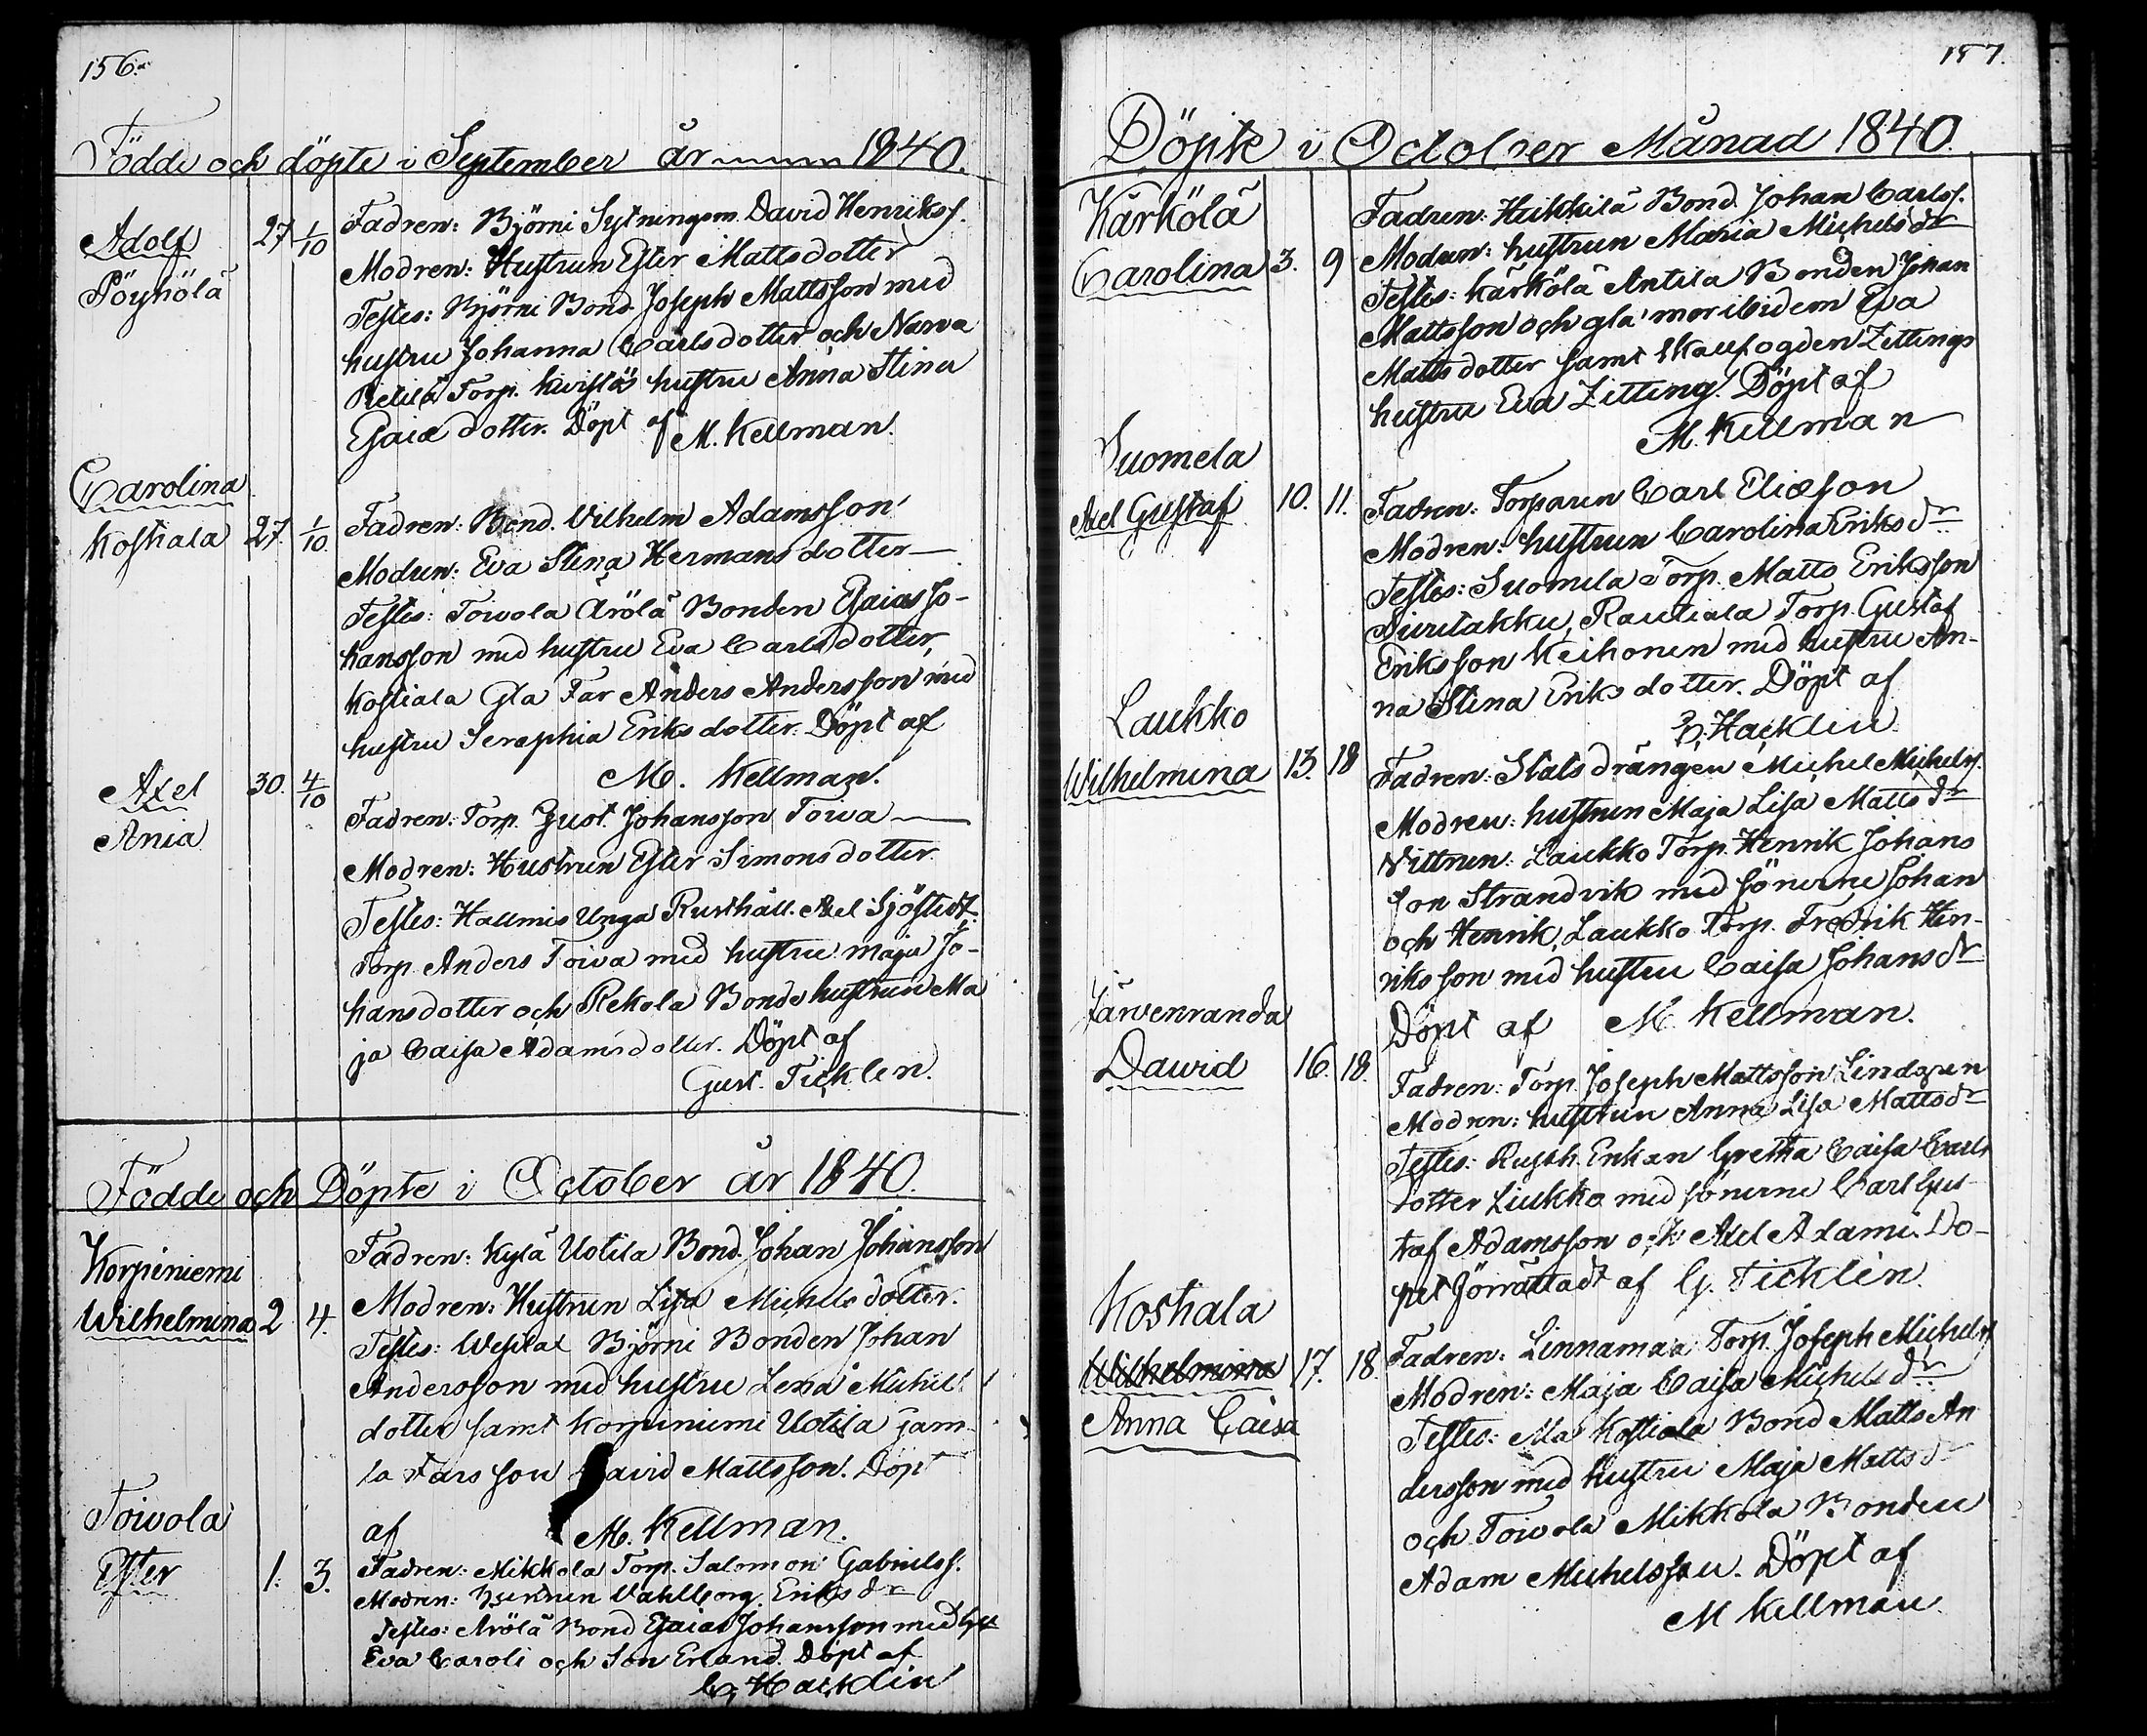 156.
Födde och döpte i September år 1840.
Adolf 27 1/10 Fadren: Björni Sytningsm. David Henrikss.
Pöyhölä Modren: Hustrun Ester Mattsdotter
Testes: Björni Bond. Joseph Mattsson med
hustru Johanna Carlsdotter och Narva
Torp. hustru Anna Stina
Esaiædotter. Döpt af M. Kellman.
Carolina
Koskiala 27. 1/10 Fadren: Bond. Vilhelm Adamsson
Modren: Eva Stina Hermansdotter
Testes: Toivola Arölä Bonden Esaias Jo-
hansson med hustru Eva Carlsdotter,
Koskiala Gla Far Anders Andersson med
hustru Seraphia Eriksdotter. Döpt af
M. Kellman.
Axel 30. 4/10 Fadren: Torp. Gust. Johansson Toiva
Ania Modren: Hustrun Ester Simonsdotter.
Testes: Hallmis Unga Rusthåll. Axel Sjöstedt.
Torp. Anders Toiva med hustru Maja Jo-
hansdotter och Rekola Bondehustrun Ma
ja Caisa Adamsdotter. Döpt af
Gust. Ticklen.
Födde och Döpte i October år 1840.
Korpiniemi Fadren: Kylä Uotila Bond. Johan Johansson
Wilhelmina 2 4. Modren: Hustrun Lisa Michelsdotter.
Testes: Björni Bonden Johan
Andersson med hustru Lena Michels
dotter samt Korpiniemi Uotila gam-
la Fars son David Mattsson. Döpt
af M. Kellman.
Toivola
Ester 1. 3. Fadren: Mikkola Torp. Salomon Gabrielss.
Modren: Hustrun Vahlborg Eriksdr
Testes: Arölä Bond Esaias Johansson med hu
Eva Caroli och Son Erland. Döpt af
C. Hacklin
157.
Döpte i October Månad 1840.
Kärkölä Fadren: Heikkilä Bond. Johan Carlss.
Carolina 3. 9 Modren: hustrun Maria Michelsdr
Testes: Kärkölä Antila Bonden Johan
Mattsson och gla mor ibidem Eva
Mattsdotter samt Skaufogden Zittings
hustru Eva Zitting. Döpt af
M. Kellman
Suomela
Axel Gustaf 10. 11. Fadren: Torparen Carl Eliæson
Modren: hustrun Carolina Eriksdr
Testes: Suomela Torp. Matts Eriksson
Rautiala Torp. Gustaf
Eriksson Keihonen med hustru An-
na Stina Eriksdotter. Döpt af
C. Hacklin.
Laukko
Wilhelmina 13. 18 Fadren: Statsdrängen Michel Michelss.
Modren: hustrun Maja Lisa Mattsdr
Vittnen: Laukko Torp. Henrik Johans
son Strandvik med sönerne Johan
och Henrik, Laukko Torp. Fredrik Hen-
riksson med hustru Caisa Johansdr
Döpt af M. Kellman.
Järvenranda
Dawid 16. 18. Fadren: Torp. Joseph Mattsson Lindgren
Modren: hustrun Anna Lisa Mattsdr
Testes: Rusth. Enkan Gretha Caisa Carls
dotter Liukko med sönerne Carl Gus-
taf Adamsson och Axel Adams. Do-
pet förrättadt af G. Ticklén.
Koskiala
~~Wilhelmina~~ 17. 18. Fadren: Linnamaa Torp. Joseph Michelss
Anna Caisa Modren: Maja Caisa Michelsdr
Testes: Ala Koskiala Bond Matts An
dersson med hustru Maja Mattsdr
och Toivola Mikkola Bonden
Adam Michelsson. Döpt af
M Kellman.